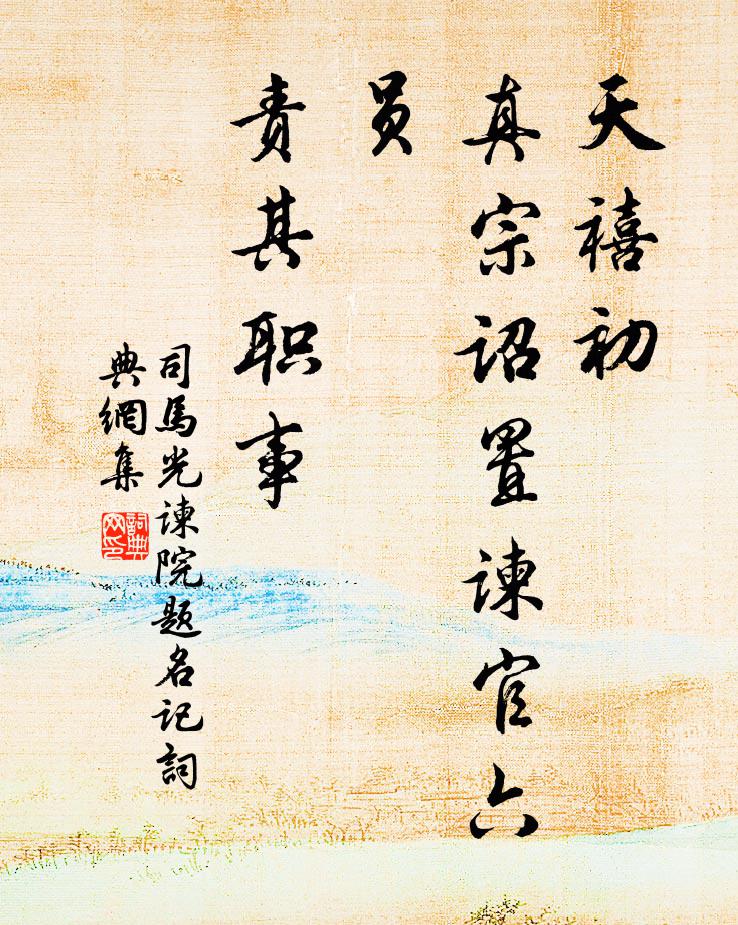 天禧初
真宗诏置谏官六
员
责其职事
司馬光谏院题名记詞
典網集
詞典
网印